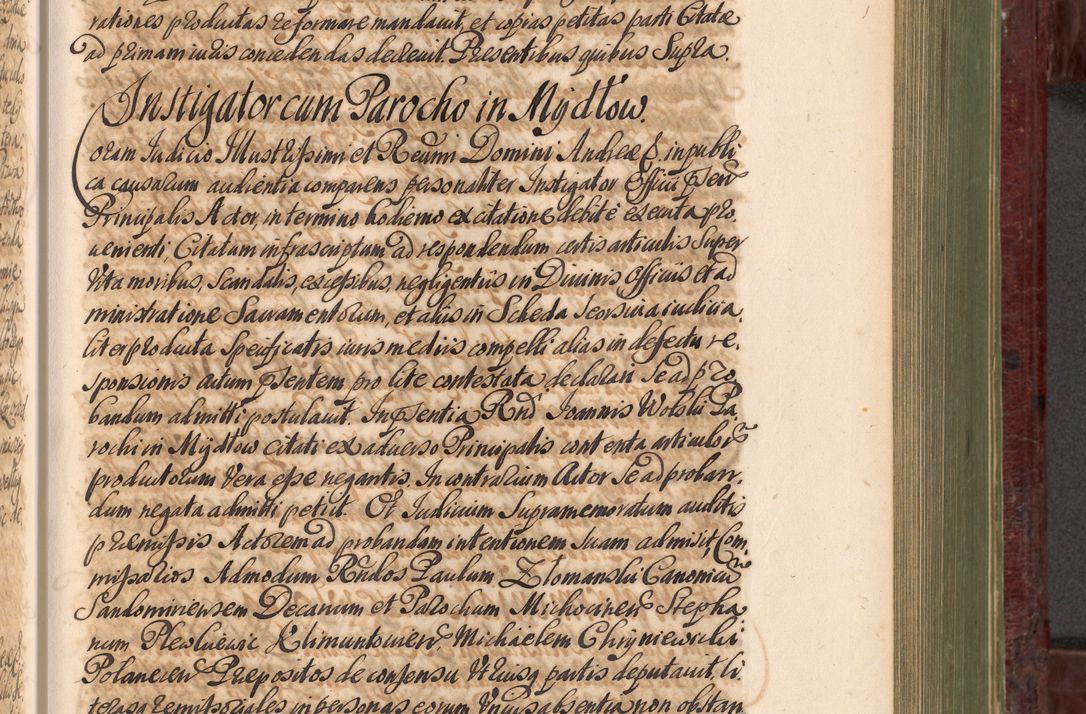 rationes productas reformare mandavit, et copias petitas parti Citatæ
ad primam iuris concedendas decrevit. Præsentibus quibus Supra.
Instigator cum Parocho in Mÿdłow.
Coram Iudicio Illustrissimi et Reũmi Domini Andreæ & in publi
ca causarum audientia comparens personaliter Instigator Officii pñsen
Principalis Actor, in termino hodierno ex citatione debitè executa pro,
venienti, Citatum infrascriptum ad respondendum certis articulis Super
Vita moribus, Scandalis, excessibus, negligentiis in Divinis Officiis et ad
ministratione Sacramentorum, et aliis in Scheda Seorsiva iudicia,
liter producta Specificatis iuris mediis compelli alias in defectu re,
sponsionis actum pñsentem pro lite contestata declarari Se ad pro
bandum admitti postulavit. In pñsentia Rñd Ioannis Wolski Pa,
rochi in Mÿdłow citati ex adverso Principalis contenta articulor
productorum Vera esse negantis, In contrarium Actor Se ad proban,
dum negata admitti petiit. Et Iudicium Supramemoratum auditis
præmissis Actorem ad probandam intentionem Suam admisit, Com,
missarios Admodum Rñdos Paulum Złomanski Canonicum
Sandomiriensem Decanum et Parochum Michocinen Stepha
num Klimuntovien, Michaelem Chryniewicki
Polanecen Præpositos de consensu Utriusq partis deputavit, li
teras remissoriales in personas eorum Unius absentia non obstan